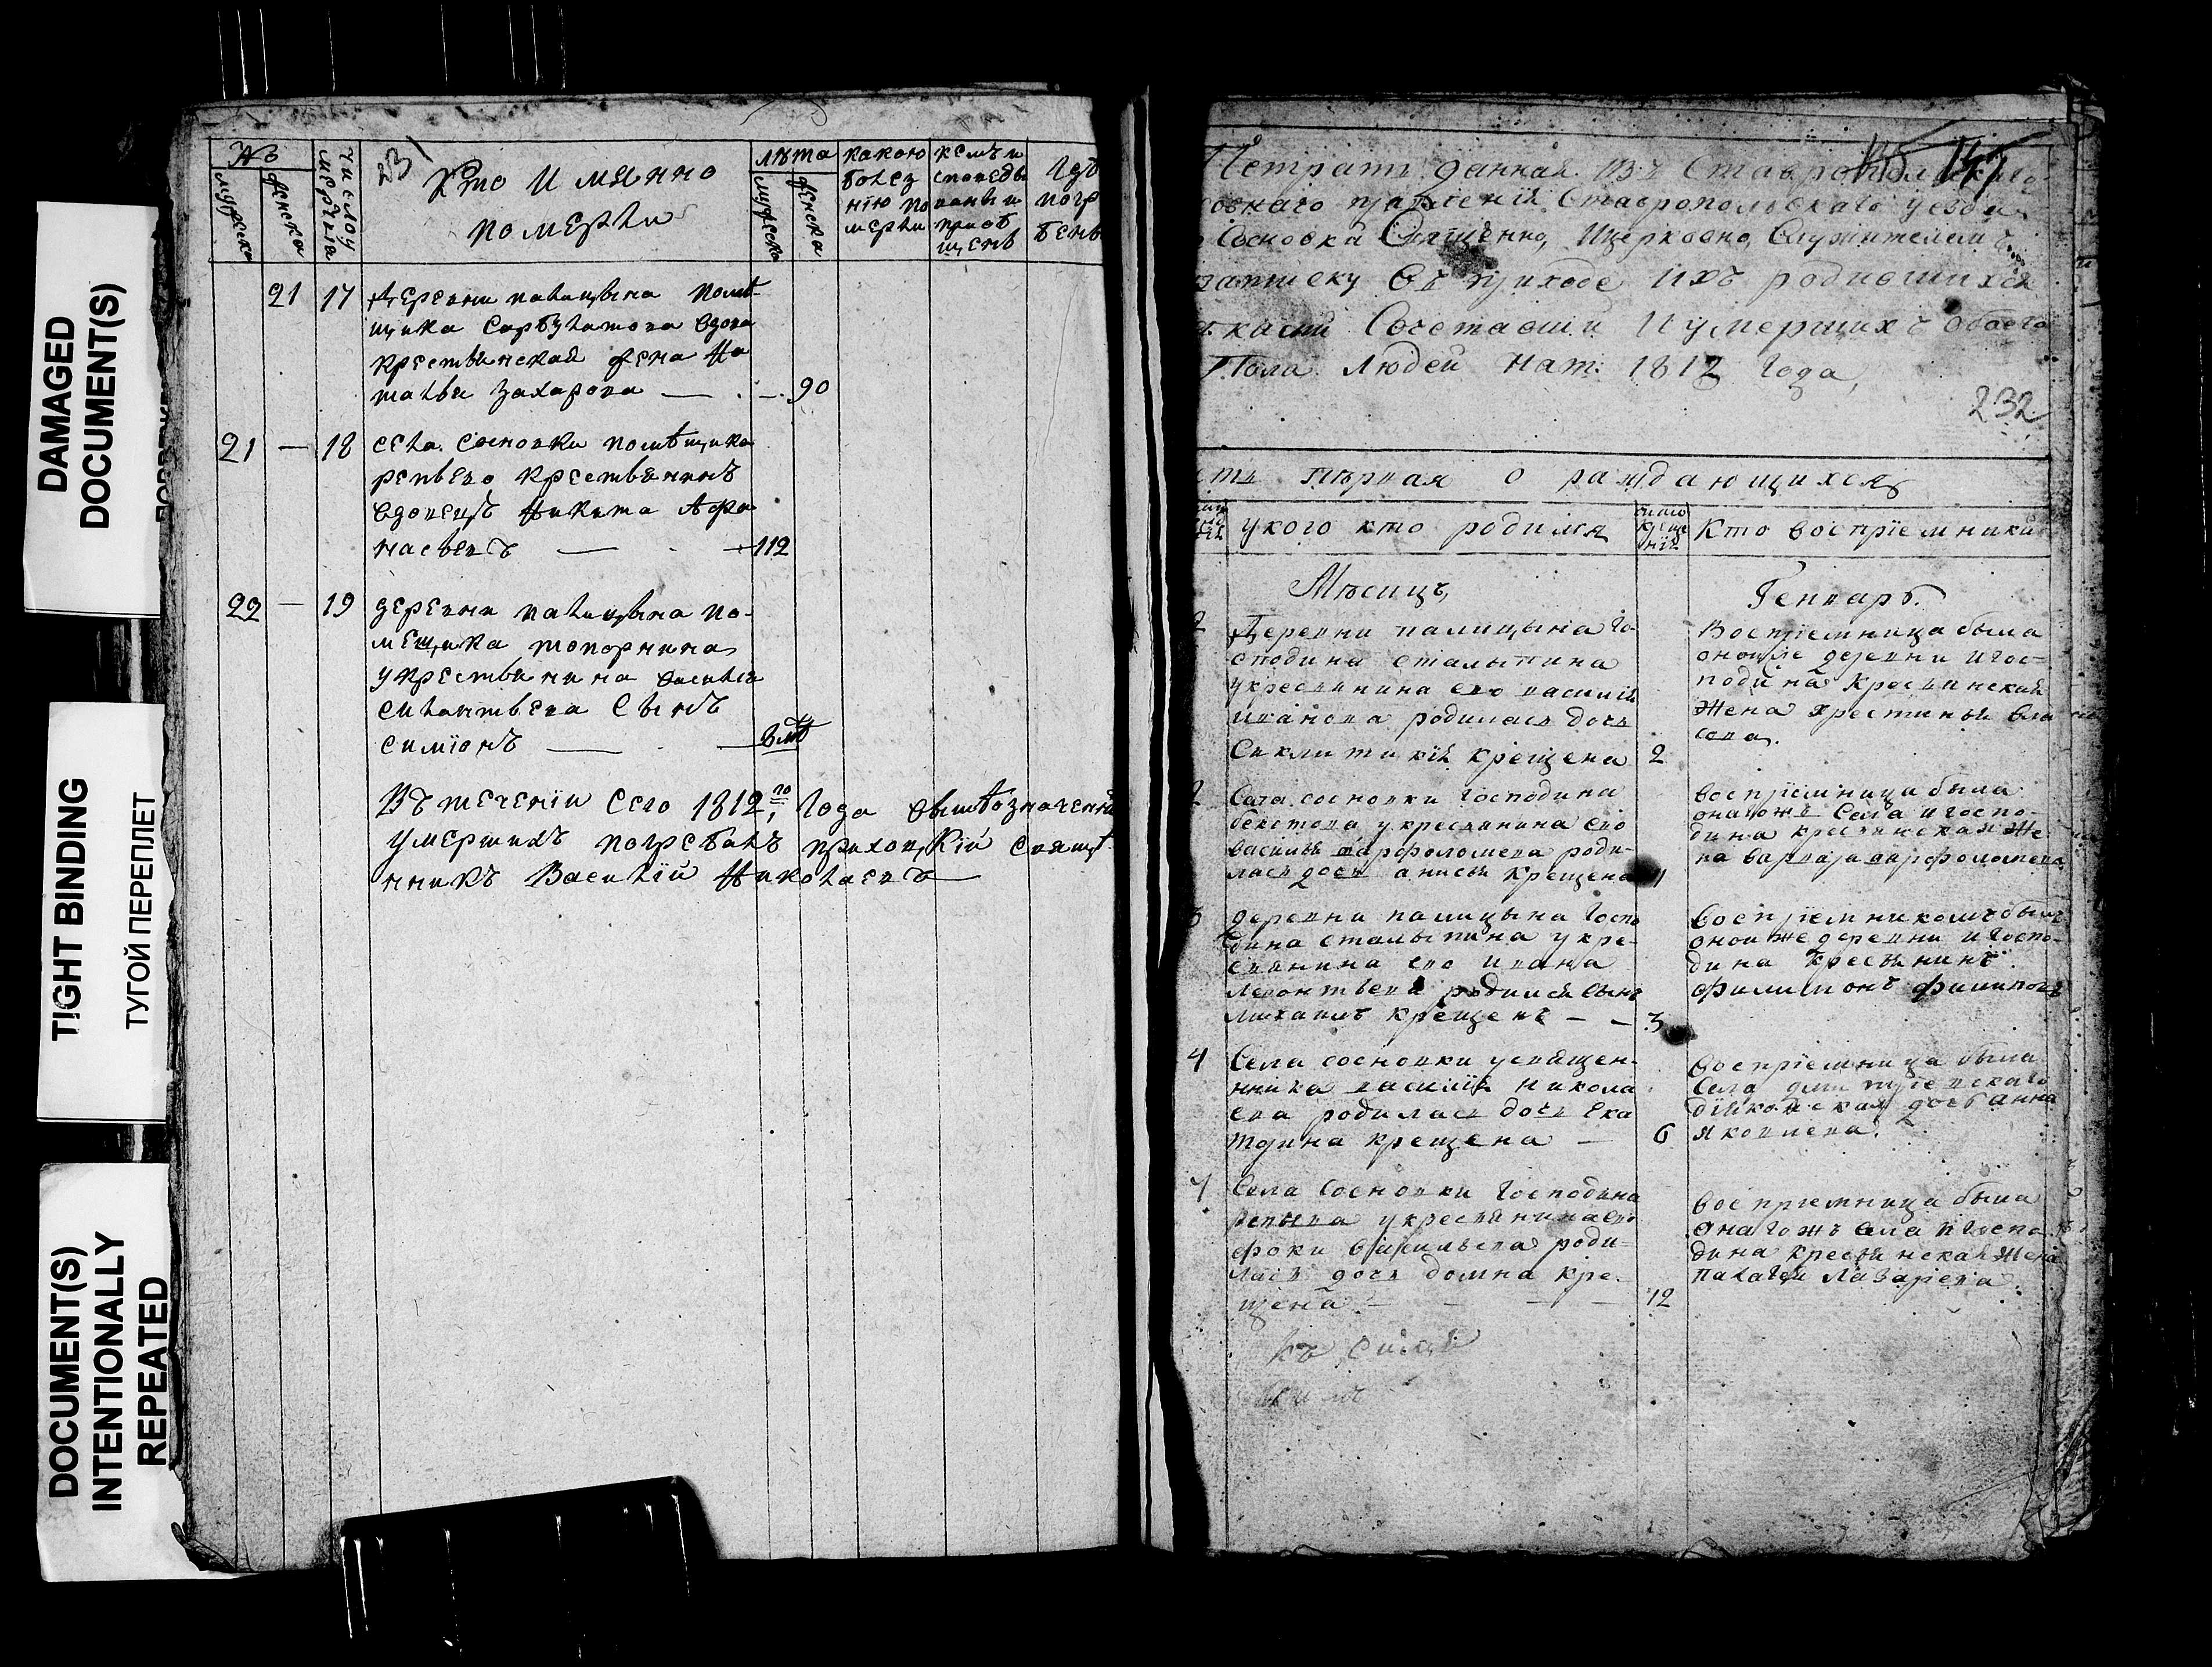 DAMAGED
DOCUMENT(S)
TIGHT BINDING
ТУГОЙ ПЕРЕПЛЕТ
DOCUMENT(S)
INTENTIONALLY
REPEATED
№
мужеска
женска
число у
мерътия
Кто имянно
померли
лѣта
мужеска
женска
какою
болез
нїю по
мерли
кемъ и
споведы
ваны и
приоб
щенъ
гдѣ
погр
бенъ
21 17 Деревни палицына помѣ-
щика Сарбулатова вдова
крестьянская жена На
талья Захарова — 90
21 — 18 села Сосновки помѣщика
репьево крестьянинъ
вдовецъ Никита Афо
насьевъ — 112
22 — 19 деревни палицына по-
мещика топорнина
укрестьянина василья
силантьева Сынъ
симїонъ —
Въ течении Сего 1812,го Года вышѣозначенны
умершихъ погребалъ приходцкїй Свящѣ
нникъ Василїй Николаевъ
Тетрать данная изъ Ставропольскаго
правленїя Ставропольскаго уезда
Сосновки Священно, Ицерковно, Служителемъ
записку въ приходе ихъ родившихся
Сочетавши Иумершихъ обоего
Пола людей на 1812 Года,
147
232
пѣрвая о раждающихся
укого кто родился
число
креще
нїя
Кто восприемники
Мѣсяцъ,
Генварь.
2 Деревни палицына го-
сподина сталыпина
укресянина ево василїя
иванова родилась дочь
Синклитикїя крещена 2
Восприемница была
оной же деревни игос-
подина кресьянская
жена хрестинья вла
сова.
2 Села сосновки Господина
бекетова укресянина ево
василья варфоломева роди-
лась дочь анисья крещена
восприемница была
оногожъ Села игоспо-
дина кресьянская же
на варвара варфоломева
3 деревни палицына Госпо
дина сталыпина укре-
сянина ево ивана
Леонтьева родился сынъ
михаилъ крещенъ — — 3
восприемникомъ былъ
оной же деревни игоспо-
дина кресьянинъ
филимонъ филиповъ
4 Села сосновки усвящен-
нника василїя никола
ева родилась дочь Ека
терина крещена — 6
восприемница была
Села дмитриевскаго
дїяконская дочь анна
яковлева.
7 Села сосновки Господина
репьева укресянина ево
фоки васильева роди-
лась дочь домна кре-
щена — 12
восприемница была
Оногожъ села игоспо
дина кресьянская жена
Палагея лазарева.
къ сить